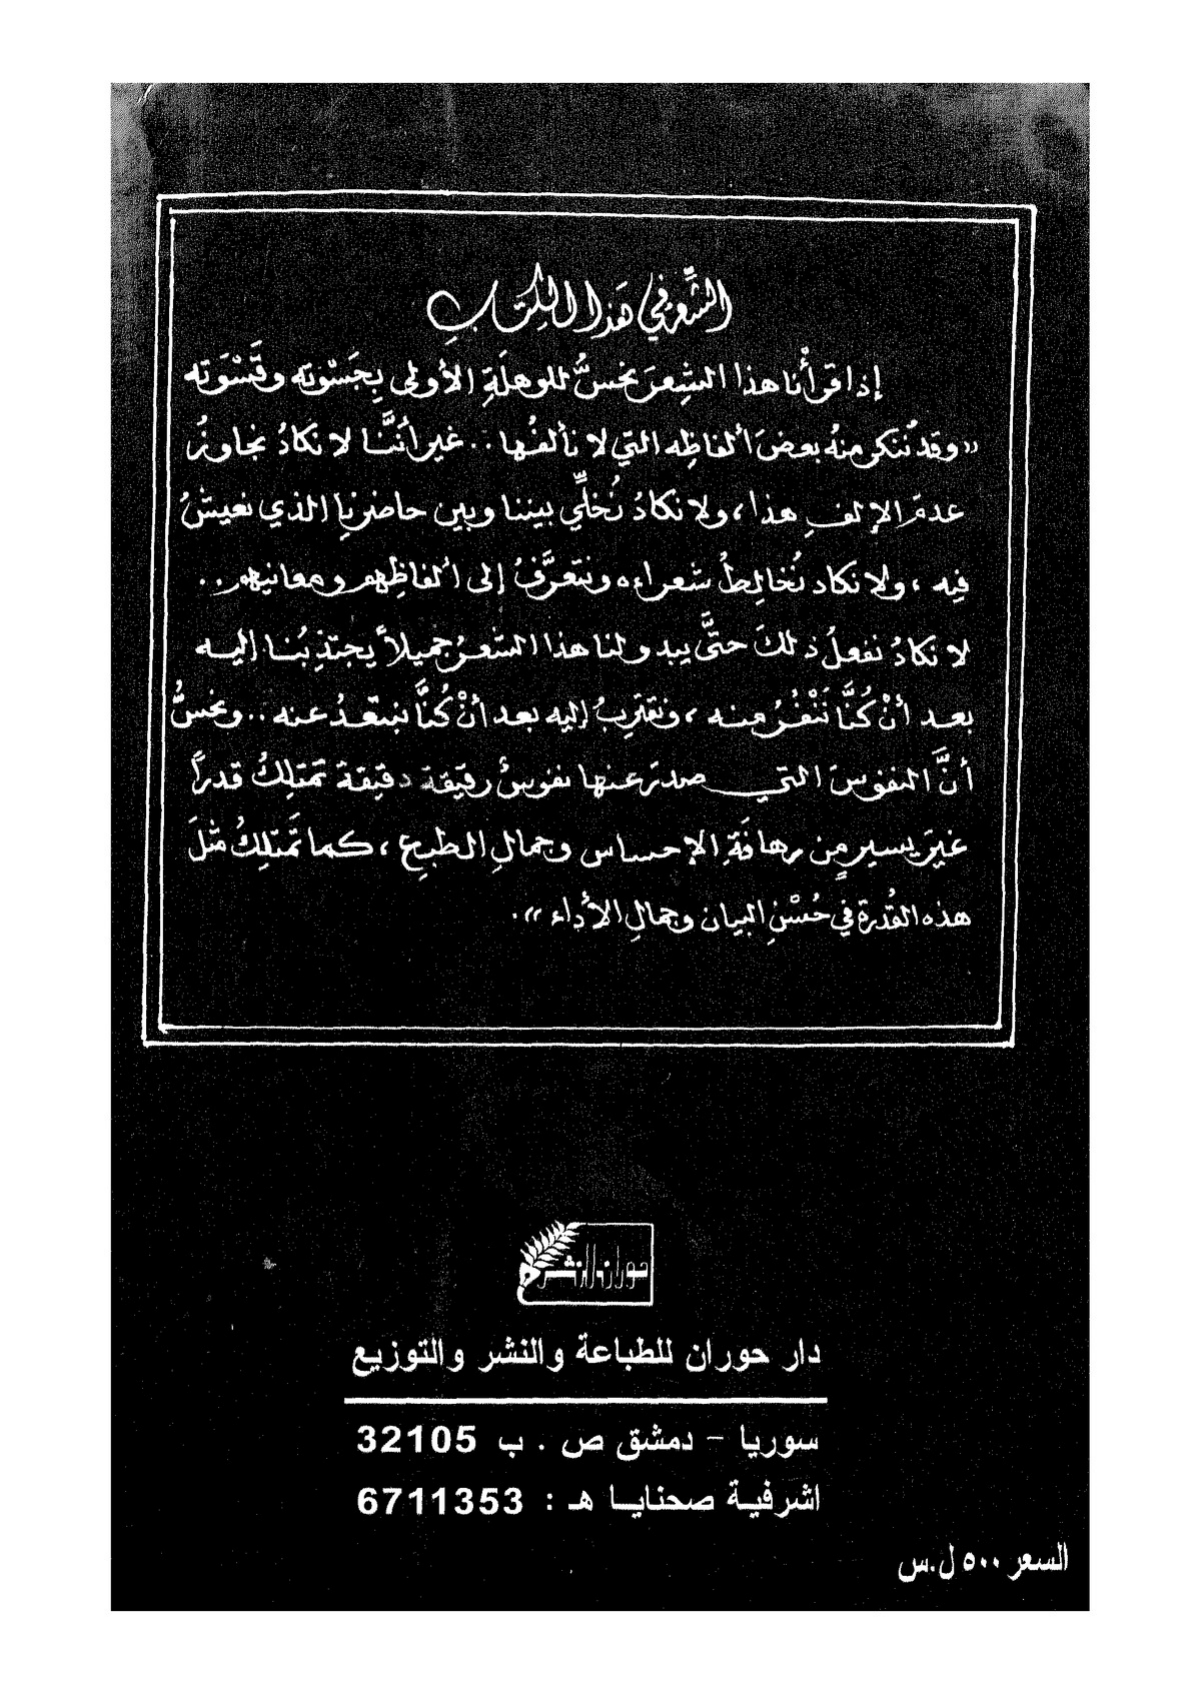 الشِّعر في هَذا الكِتابِ
إذا قرأْنا هذا الشِعرَ نحسُّ للوهلَةِ الأولى بِجَسْوته وقَسْوَته
«وقد نُنكر منهُ بعضَ ألفاظِه التي لا نألفُها .. غير أنَّنا لا نكادُ نجاوزُ
عدمَ الإلفِ هذا، ولا نكادُ نُخلِّي بيننا وبين حاضرنا الذي نعيشُ
فيه، ولا نكاد نُخالِطُ شعراءه ونتعرَّفُ إلى ألفاظِهم ومعانيهم ..
لا نكادُ نفعلُ ذلكَ حتَّى يبدو لنا هذا الشعرُ جميلاً يجتذبُنا إليه
بعد أنْ كُنَّا نَنْفُرُ منه، ونقتربُ إليه بعد أنْ كُنَّا نبتعدُ عنه .. ونحسُّ
أنَّ النفوسَ التي صدرَ عنها نفوسٌ رقيقة دقيقة تمتلكُ قدراً
غيرَ يسيرٍ من رهافَةِ الإحساس وجمالِ الطبعِ، كما تَمتلِكُ مثلَ
هذه القُدرة في حُسْنِ البيان وجمالِ الأداء».
حوران للنشر
دار حوران للطباعة والنشر والتوزيع
سوريا - دمشق ص . ب 32105
اشرفية صحنايا هـ : 6711353
السعر ٥٠٠ ل.س